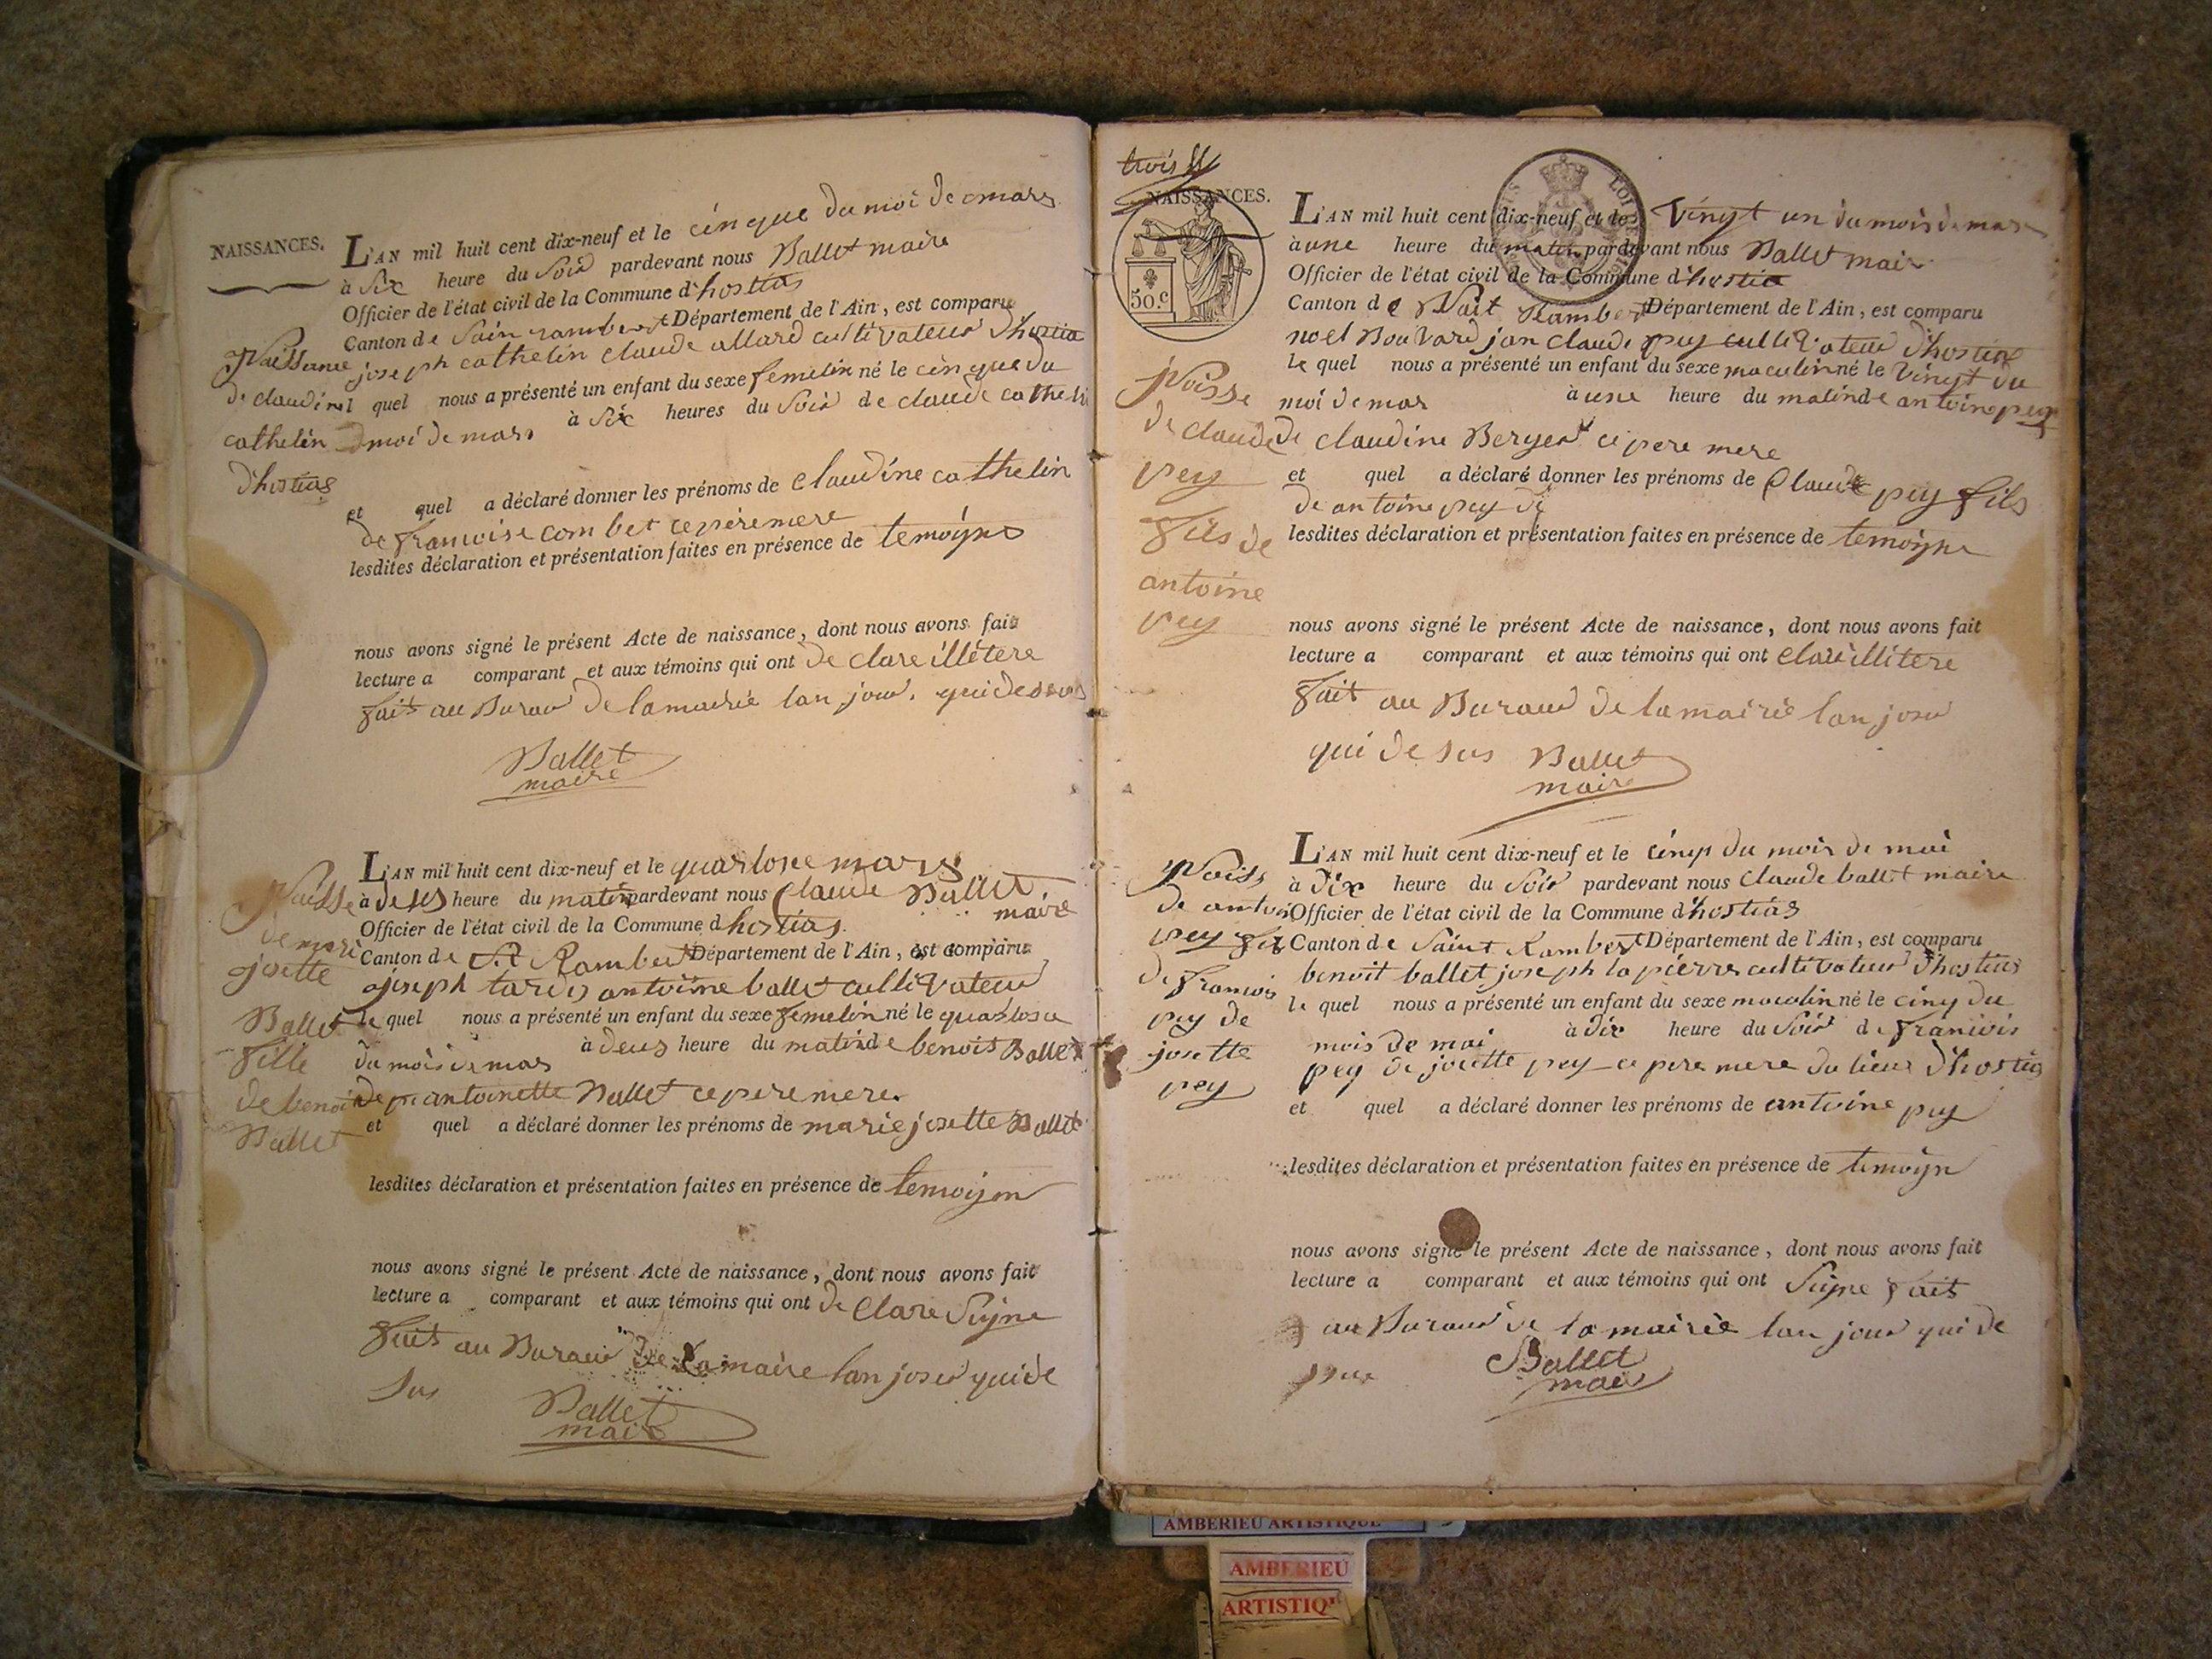 NAISSANCES.
L'AN mil huit cent dix-neuf et le cinque du moi de mars
à Six heure du Soir pardevant nous Ballet maire
Officier de l'état civil de la Commune d'hostias
Canton de Sain rambert Département de l'Ain, est comparu
joseph cathelin claude allard cultivateur d'hostia
l quel nous a présenté un enfant du sexe femelin né le cinque du
moi de mars à Six heures du Soir de claude cathelin
et quel a déclaré donner les prénoms de claudine cathelin
de francoise combet ce pere mere
lesdites déclaration et présentation faites en présence de temoigns
nous avons signé le présent Acte de naissance, dont nous avons fait
lecture a comparant et aux témoins qui ont de clare illétere
fait au Burau de la mairie lan jour. qui desus
Ballet
maire
Naissance
de claudine
cathelin
d'hostias
L'AN mil huit cent dix-neuf et le quartose mars
à deus heure du matin pardevant nous Claude Ballet.
maire
Officier de l'état civil de la Commune d'hostias.
Canton de St Rambert Département de l'Ain, est comparu
joseph antoine ballet cultivateur
le quel nous a présenté un enfant du sexe femelin né le quartose
du mois de mars à deus heure du matin de benoit Ballet
de antoinette Ballet ce pere mere.
et quel a déclaré donner les prénoms de marie josette Ballet
lesdites déclaration et présentation faites en présence de temoign
nous avons signé le présent Acte de naissance, dont nous avons fait
lecture a comparant et aux témoins qui ont de clare Signe
fait au Burau de la maire lan jour qui de
sus
Ballet
maire
Naisse
de mari
josette
Ballet
fille
de benoit
Ballet
trois
NAISSANCES.
50.c
L'AN mil huit cent dix-neuf et le vingt un du mois de mars
à une heure du matin pardevant nous Ballet maire
Officier de l'état civil de la Commune d'hostia
Canton de Rambert Département de l'Ain, est comparu
noel Bouvard jan claude pey cultivateur d'hostias
le quel nous a présenté un enfant du sexe masculin né le vingt du
moi de mars à une heure du matin de antoine pey
de claudine Berger ce pere mere
et quel a déclaré donner les prénoms de Claude pey fils
de antoine pey de
lesdites déclaration et présentation faites en présence de temoigne
nous avons signé le présent Acte de naissance, dont nous avons fait
lecture a comparant et aux témoins qui ont clare illitere
fait au Burau de la mairie lan jour
qui de sus Ballet
maire
Naisse
de claude
pey
fils de
antoine
pey
L'AN mil huit cent dix-neuf et le cinq du mois de mai
à dix heure du Soir pardevant nous Claude ballet maire
Officier de l'état civil de la Commune d'hostias
Canton de Saint Rambert Département de l'Ain, est comparu
benoit ballet joseph la pierre cultivateur d'hostias
le quel nous a présenté un enfant du sexe masculin né le cinq du
mois de mai à dix heure du Soir de francois
pey de josette pey ce pere mere du lieux d'hostias
et quel a déclaré donner les prénoms de antoine pey
lesdites déclaration et présentation faites en présence de temoign
nous avons signé le présent Acte de naissance, dont nous avons fait
lecture a comparant et aux témoins qui ont Signe fait
au Burau de la mairie lan jour qui de
Ballet
maire
Naiss
de antoi
pey fils
de francois
pey de
josette
pey
AMBERIEU ARTISTIQUE
AMBERIEU
ARTISTIQ